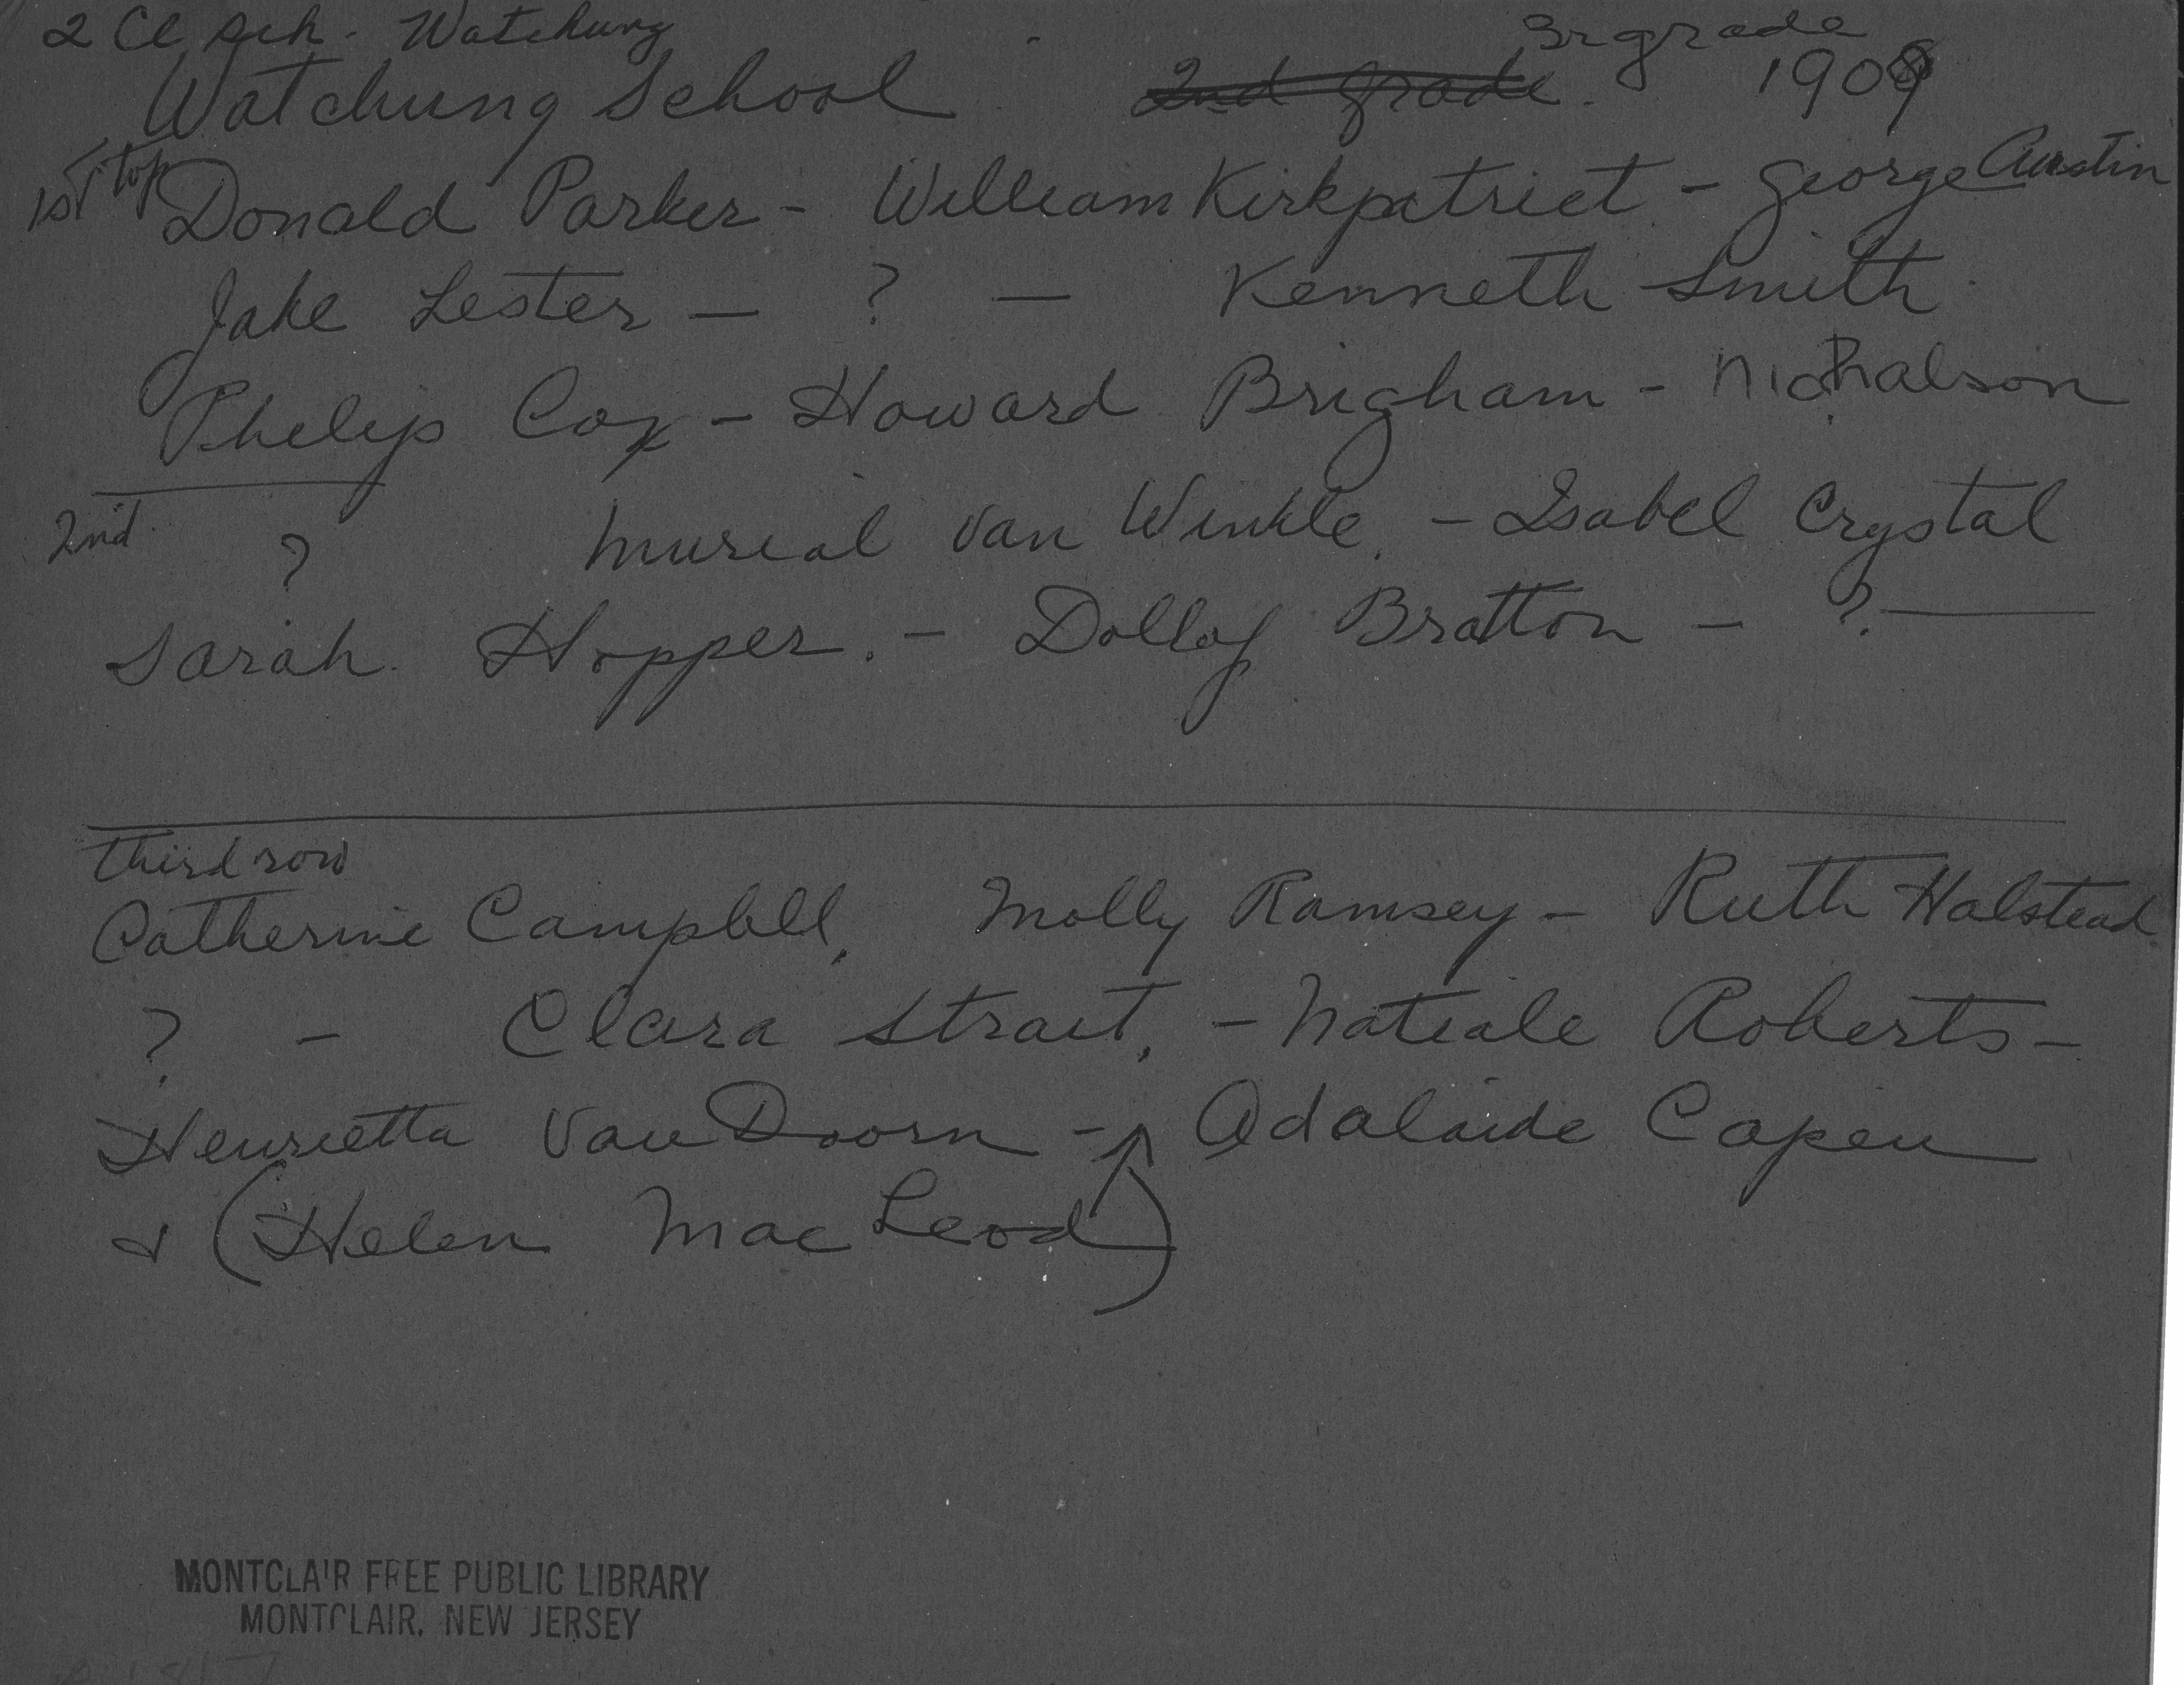 2 Cl sch. Watchung
3r grade
Watchung School 2nd grade. 1909
1st top
Donald Parker - William Kirkpatrict - George Austin
Jake Lester — ? — Kenneth Smith
Philip Cox - Howard Brigham - Nicholson
2nd
? Murial Van Winkle. - Isabel Crystal
Sarah Hopper. - Dolloy Bratton - ? —
third row
Catherine Campbell, Molly Ramsey - Ruth Halstead
? - Clara Strait, - Natiale Roberts -
Henrietta Van Doorn - Adalaide Capen
& (Helen MacLeod)
MONTCLAIR FREE PUBLIC LIBRARY
MONTCLAIR, NEW JERSEY